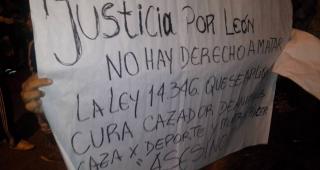 Justicia POR LEÓN
NO HAY DERECHO A MATAR
LA LEY 14.346. QUE SE
CURA CAZADOR DE
CAZA X DEPORTE Y
"ASESINO